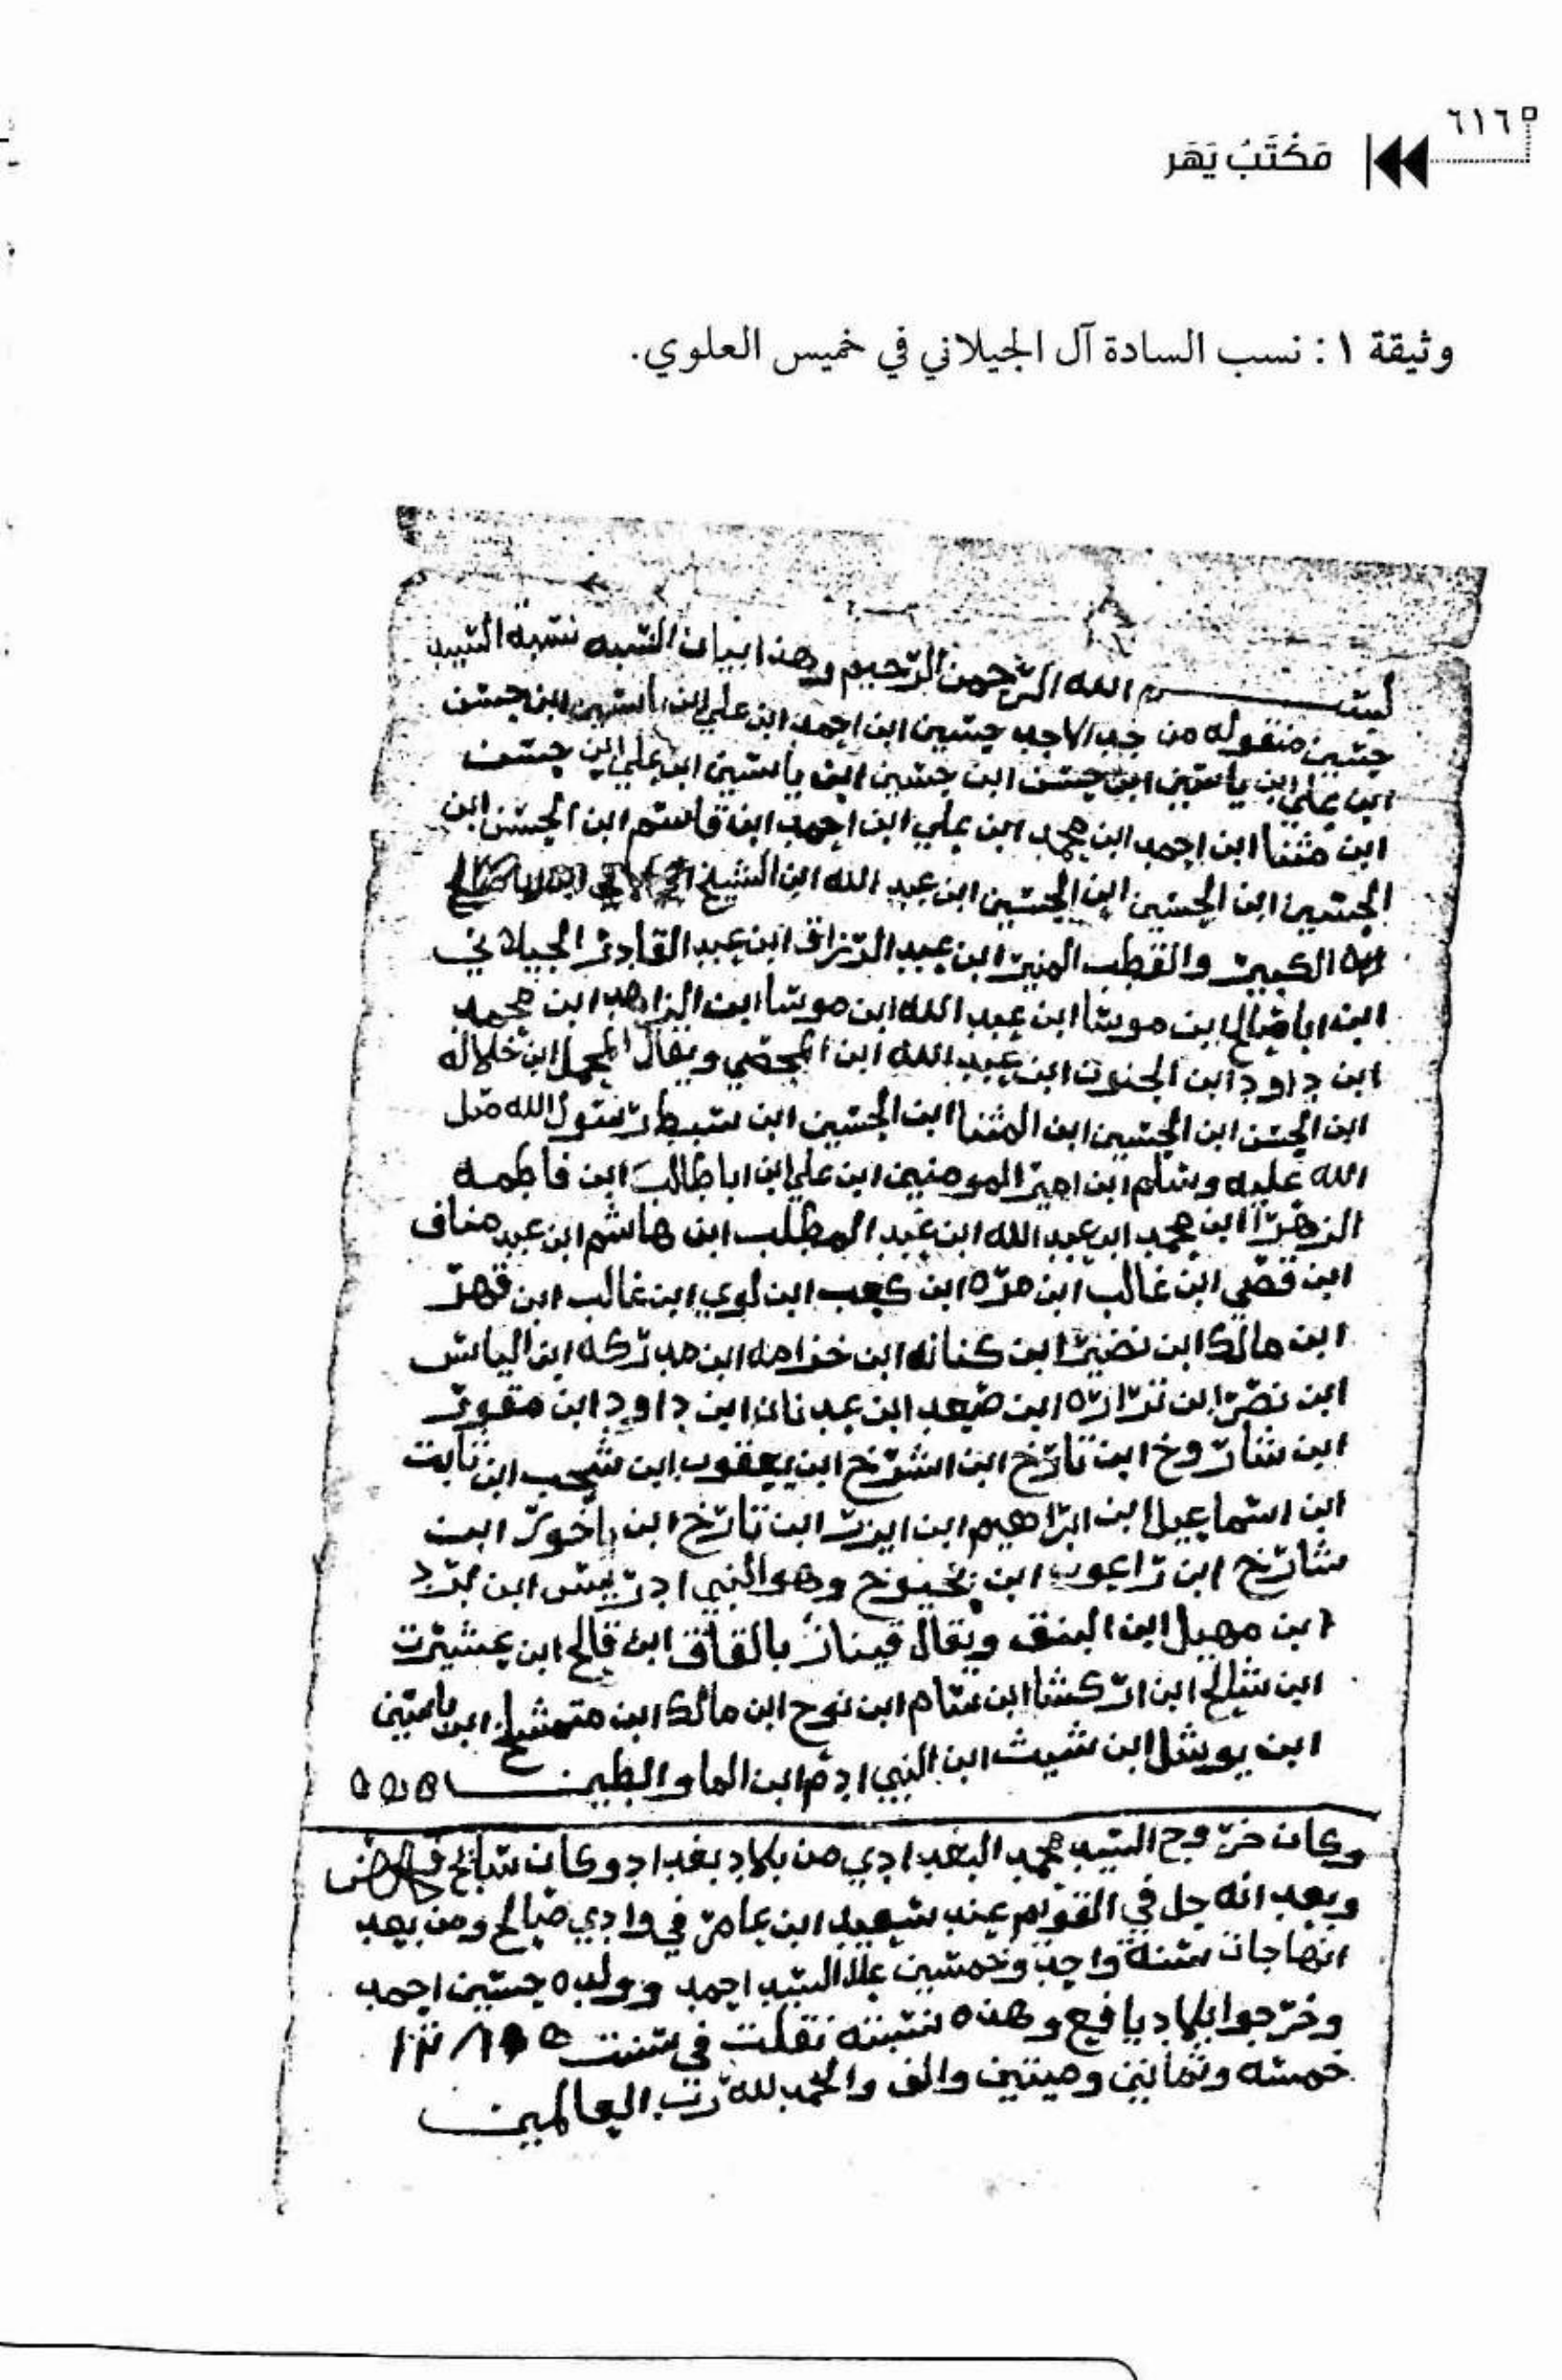 ٦١٦
مَكْتَبُ يَهَر
وثيقة ١: نسب السادة آل الجيلاني في خميس العلوي.
بسم الله الرحمن الرحيم وهذا بيان النسبه نسبة السيد
حسين منقوله من جد الاجد حسين ابن احمد ابن علي ابن ياسين ابن حسن
ابن علي ابن ياسين ابن حسن ابن حسين ابن ياسين ابن علي ابن حسن
ابن مثنا ابن احمد ابن محمد ابن علي ابن احمد ابن قاسم ابن الحسن ابن
الحسين ابن الحسين ابن الحسين ابن عبد الله ابن الشيخ
الكبير والقطب المنير ابن عبد الرزاق ابن عبد القادر الجيلاني
ابن ابا صالح ابن موسا ابن عبد الله ابن موسا ابن الزاهد ابن محمد
ابن داود ابن الجنون ابن عبد الله ابن المحضي ويقال المجمل ابن خلاله
ابن الحسن ابن الحسين ابن المثنا ابن الحسين ابن سبط رسول الله صل
الله عليه وسلم ابن امير المومنين ابن علي ابن ابا طالب ابن فاطمه
الزهرا ابن محمد ابن عبد الله ابن عبد المطلب ابن هاشم ابن عبد مناف
ابن قصي ابن غالب ابن مره ابن كعب ابن لوي ابن غالب ابن قهر
ابن مالك ابن نضير ابن كنانه ابن خزامه ابن مدركه ابن الياس
ابن نصر ابن نزاره ابن صعد ابن عدنان ابن داود ابن مقور
ابن شاروخ ابن تارخ ابن اشرخ ابن يعقوب ابن شحب ابن ثابت
ابن اسماعيل ابن ابراهيم ابن ايزر ابن تارخ ابن ياخور ابن
شارخ ابن راعوب ابن يخنوخ وهو النبي ادريس ابن يرد
ابن مهيل ابن الينق ويقال قينان بالقاف ابن قالح ابن عشيرت
ابن شالح ابن اركشا ابن سام ابن نوح ابن مالك ابن متوشلخ ابن ياسين
ابن يوشل ابن شيث ابن النبي ادم ابن الما والطين
وكان خروج السيد محمد البغدادي من بلاد بغداد وكان سايح في
وبعد انه حل في القويم عند سعيد ابن عامر في وادي صالح ومن بعد
انها جات سنة واحد وخمسين علا السيد احمد وولده حسين احمد
وخرجوا بلاد يافع وهذه نسبته نقلت في سنت
خمسه وثمانين وميتين والف والحمد لله رب العالمين